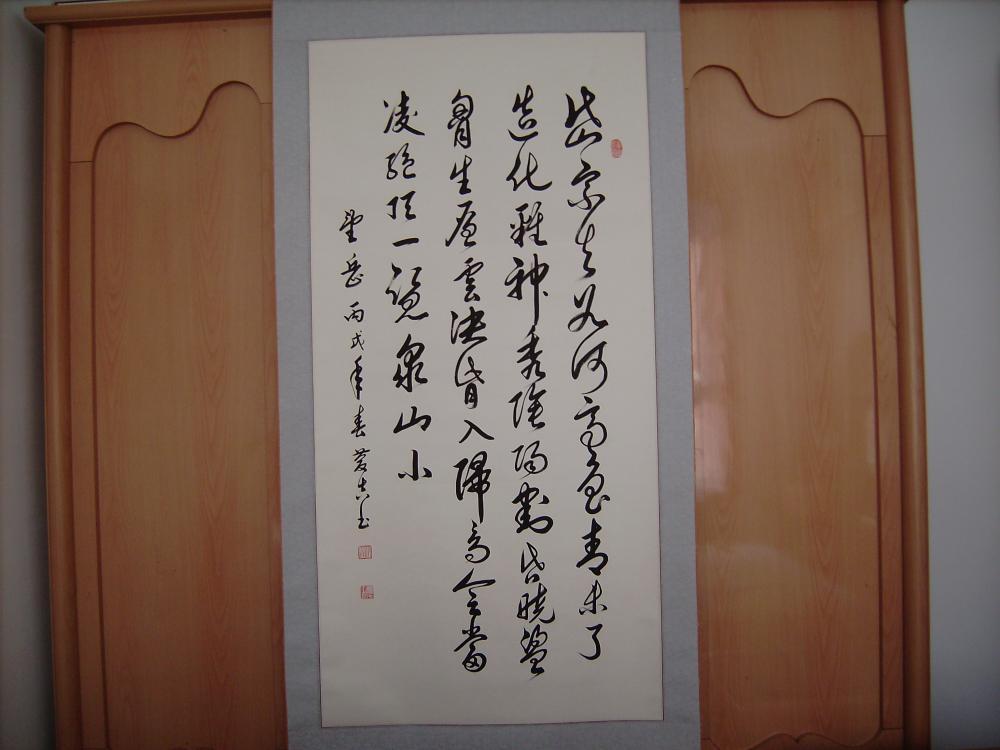 岱宗夫如何齊魯青未了
造化鍾神秀陰陽割昏曉盪
胷生層雲決眥入歸鳥會當
凌絕頂一覽眾山小
望岳丙戌年春